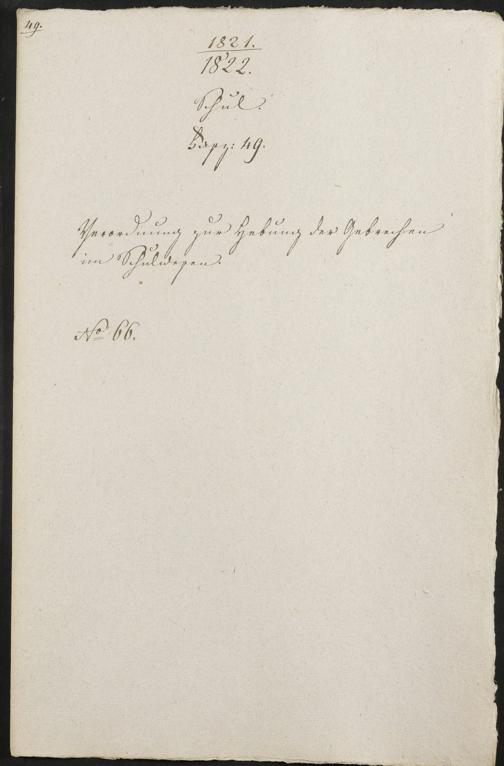 49.
1821.
1822.
Schul.
49.
Verordnung zur Hebung der Gebrechen
im Schulwesen.
No 66.